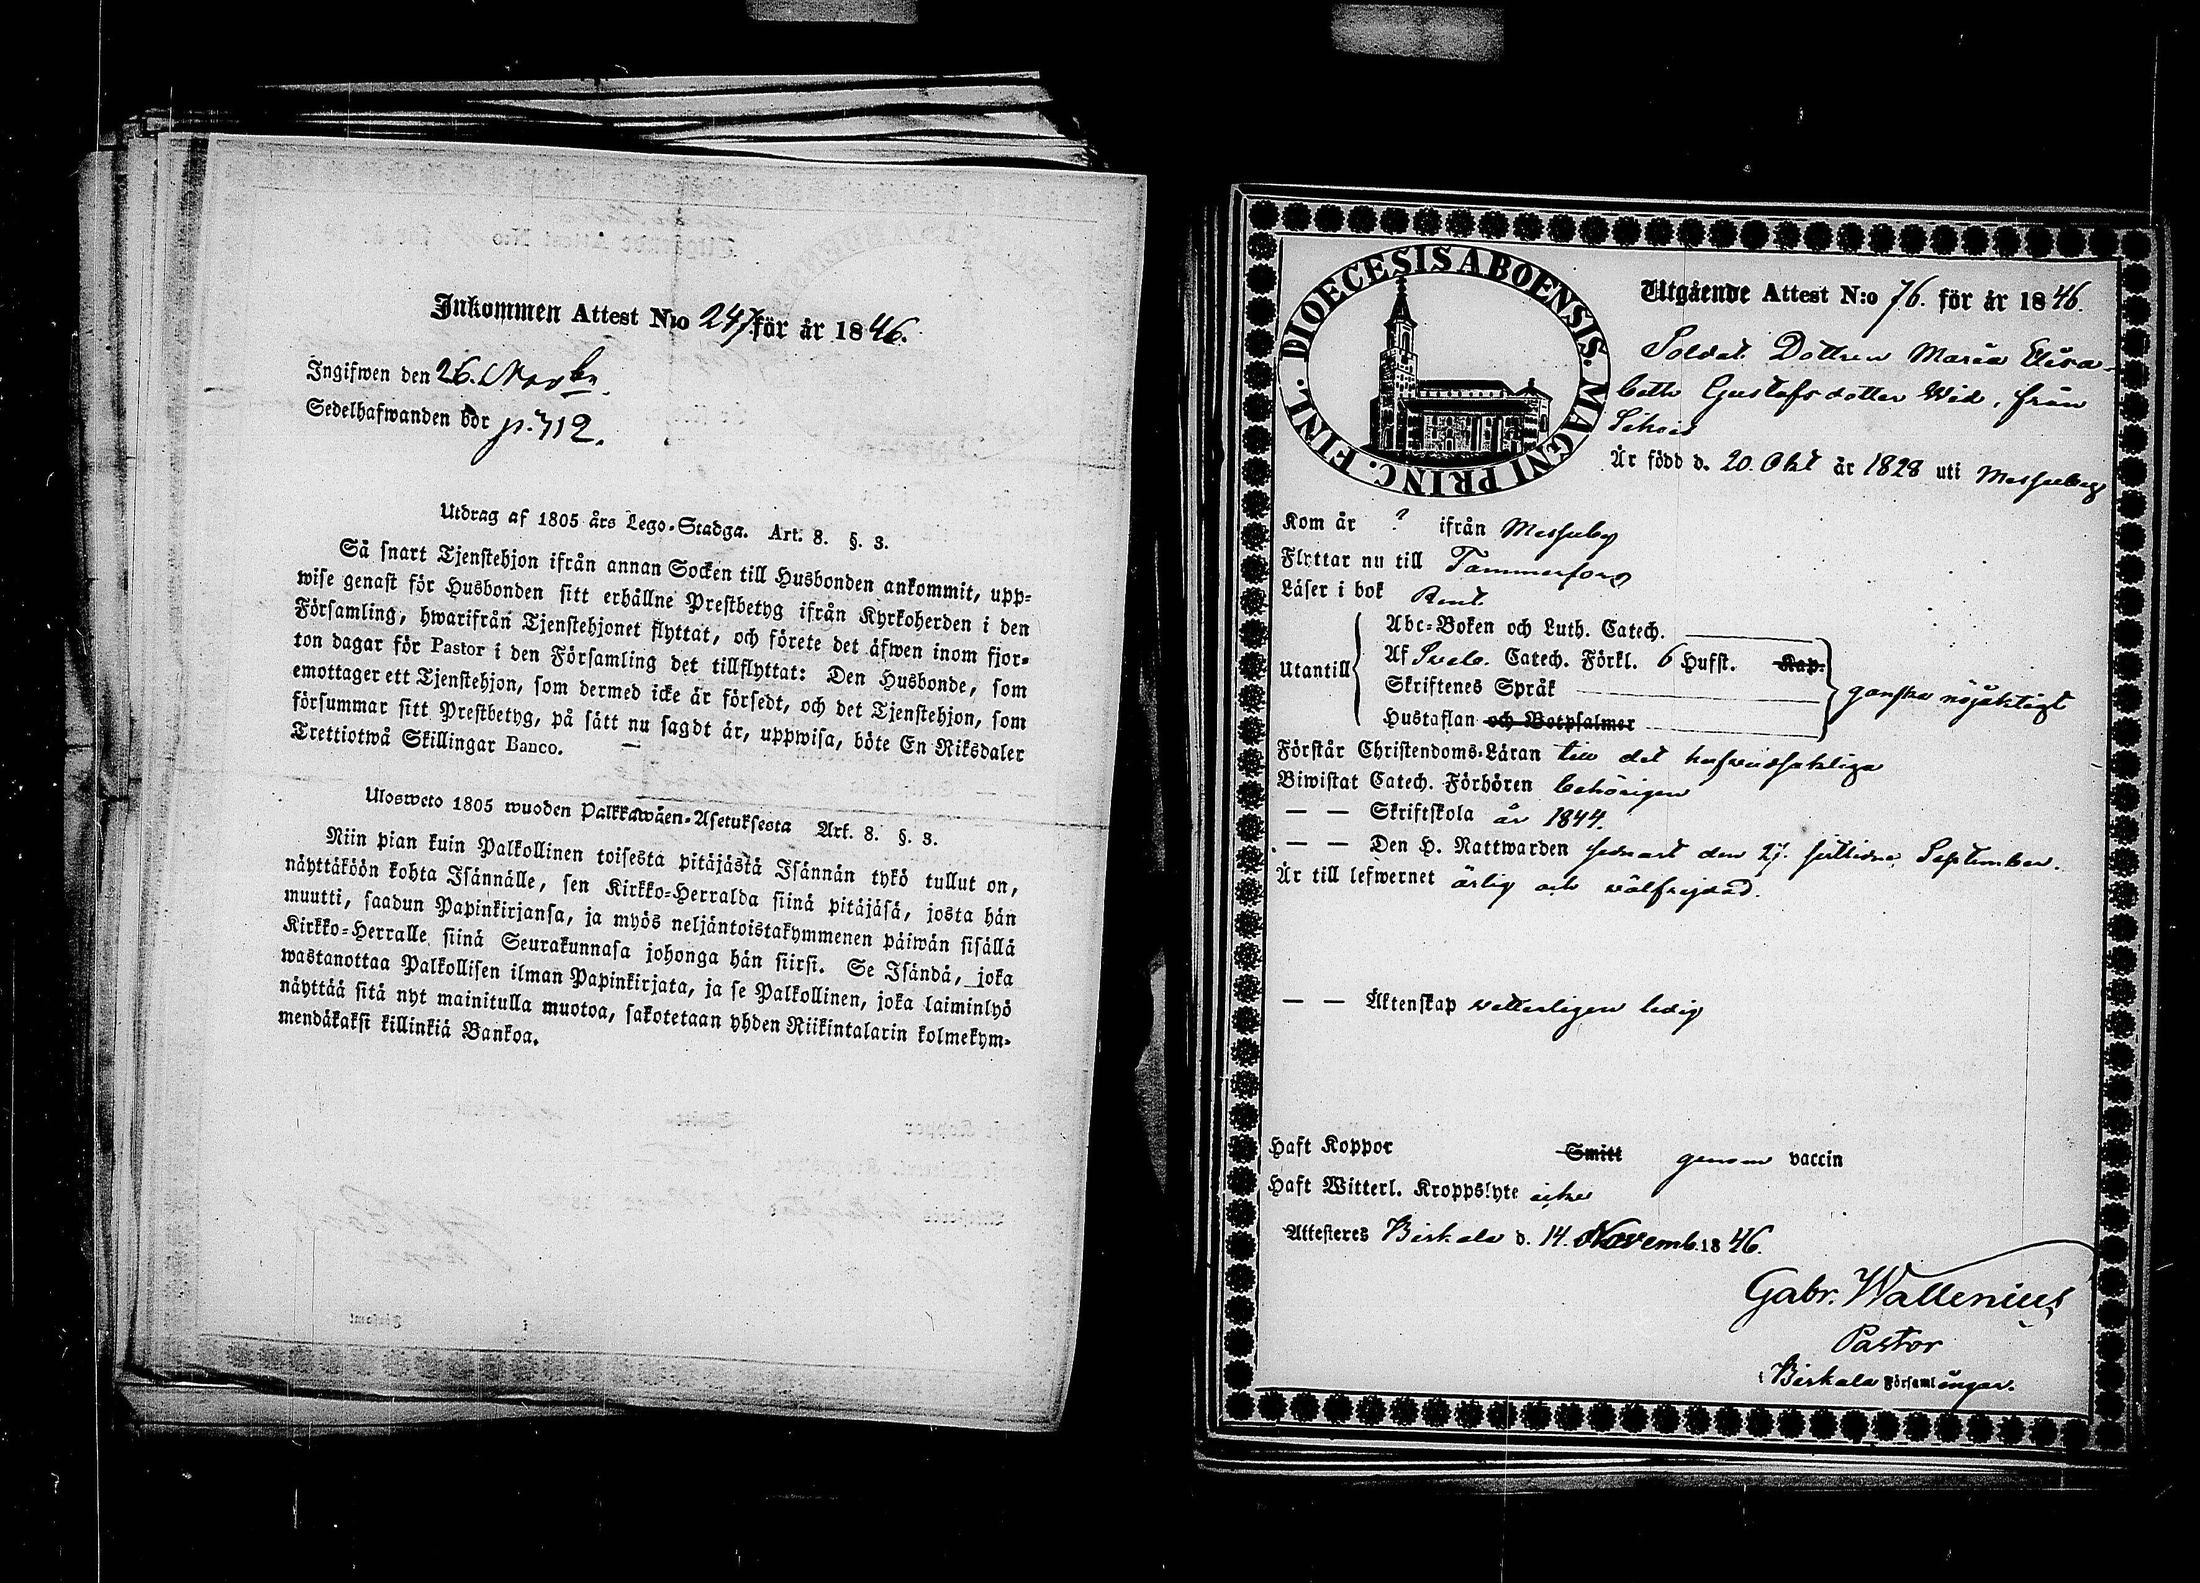 Inkommen Attest N:o 247 för år 1846.
Ingifwen den 26. Novbr
Sedelhafwanden bor p. 712.
Utdrag af 1805 års Lego-Stadga. Art. 8. §. 3.
Så snart Tjenstehjon ifrån annan Socken till Husbonden ankommit, upp-
wise genast för Husbonden sitt erhållne Prestbetyg ifrån Kyrkoherden i den
Församling, hwarifrån Tjenstehjonet flyttat, och förete det äfwen inom fjor-
ton dagar för Pastor i den Församling det tillflyttat: Den Husbonde, som
emottager ett Tjenstehjon, som dermed icke är försedt, och det Tjenstehjon, som
försummar sitt Prestbetyg, på sätt nu sagdt är, uppwisa, böte En Riksdaler
Trettiotwå Skillingar Banco.
Ulosweto 1805 wuoden Palkkawäen-Asetuksesta Art. 8. §. 3.
Niin pian kuin Palkollinen toisesta pitäjästä Isännän tykö tullut on,
näyttäköön kohta Isännälle, sen Kirkko-Herralda siinä pitäjäsä, josta hän
muutti, saadun Papinkirjansa, ja myös neljäntoistakymmenen päiwän sisällä
Kirkko-Herralle siinä Seurakunnasa johonga hän siirsi. Se Isändä, joka
wastanottaa Palkollisen ilman Papinkirjata, ja se Palkollinen, joka laiminlyö
näyttää sitä nyt mainitulla muotoa, sakotetaan yhden Riikintalarin kolmekym-
mendäkaksi killinkiä Bankoa.
DIOECESIS ABOENSIS. MAGNI PRINC. FINL.
Utgående Attest N:o 76. för år 1846.
Soldat Dottren Maria Elisa-
beth Gustafsdotter Wid, från
Är född d. 20. Okt år 1828 uti Messuby
Kom år ? ifrån Messuby
Flyttar nu till Tammerfors
Läser i bok Rent.
Utantill
Abc-Boken och Luth. Catech.
Af Sveb. Catech. Förkl. 6 Hufst. Kap.
Skriftenes Språk
Hustaflan och Botpsalmer
ganska nöjaktigt
Förstår Christendoms-Läran till det hufvudsakliga
Biwistat Catech. Förhören behörigen
— — Skriftskola år 1844.
— — Den H. Nattwarden sednast den 27. sistledne September.
Är till lefwernet ärlig och välfrejdad.
— — Äktenskap vetterligen ledig
Haft Koppor Smitt genom vaccin
Haft Witterl. Kroppslyte icke
Attesteres Birkala d. 14. Novemb. 1846.
Gabr. Wallenius
Pastor
i Birkala Församlingar.